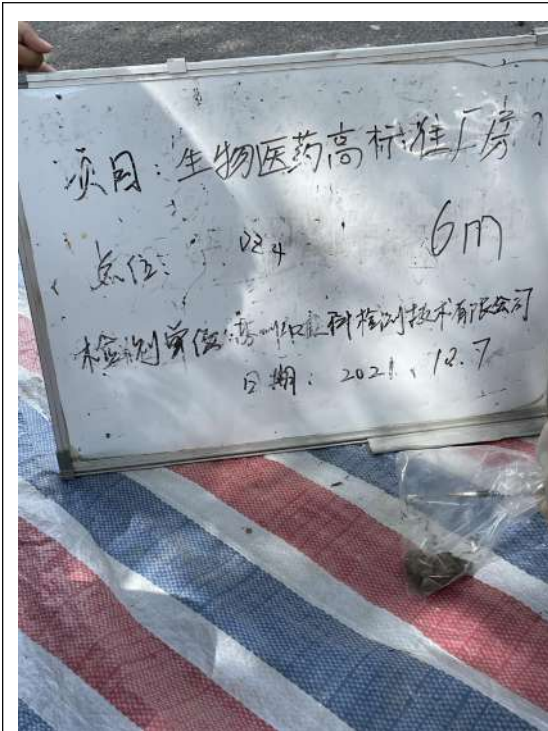 项目:生物医药高标准厂房
点位: 6m
检测单位: 科检测技术有限公司
日期: 2021.12.7